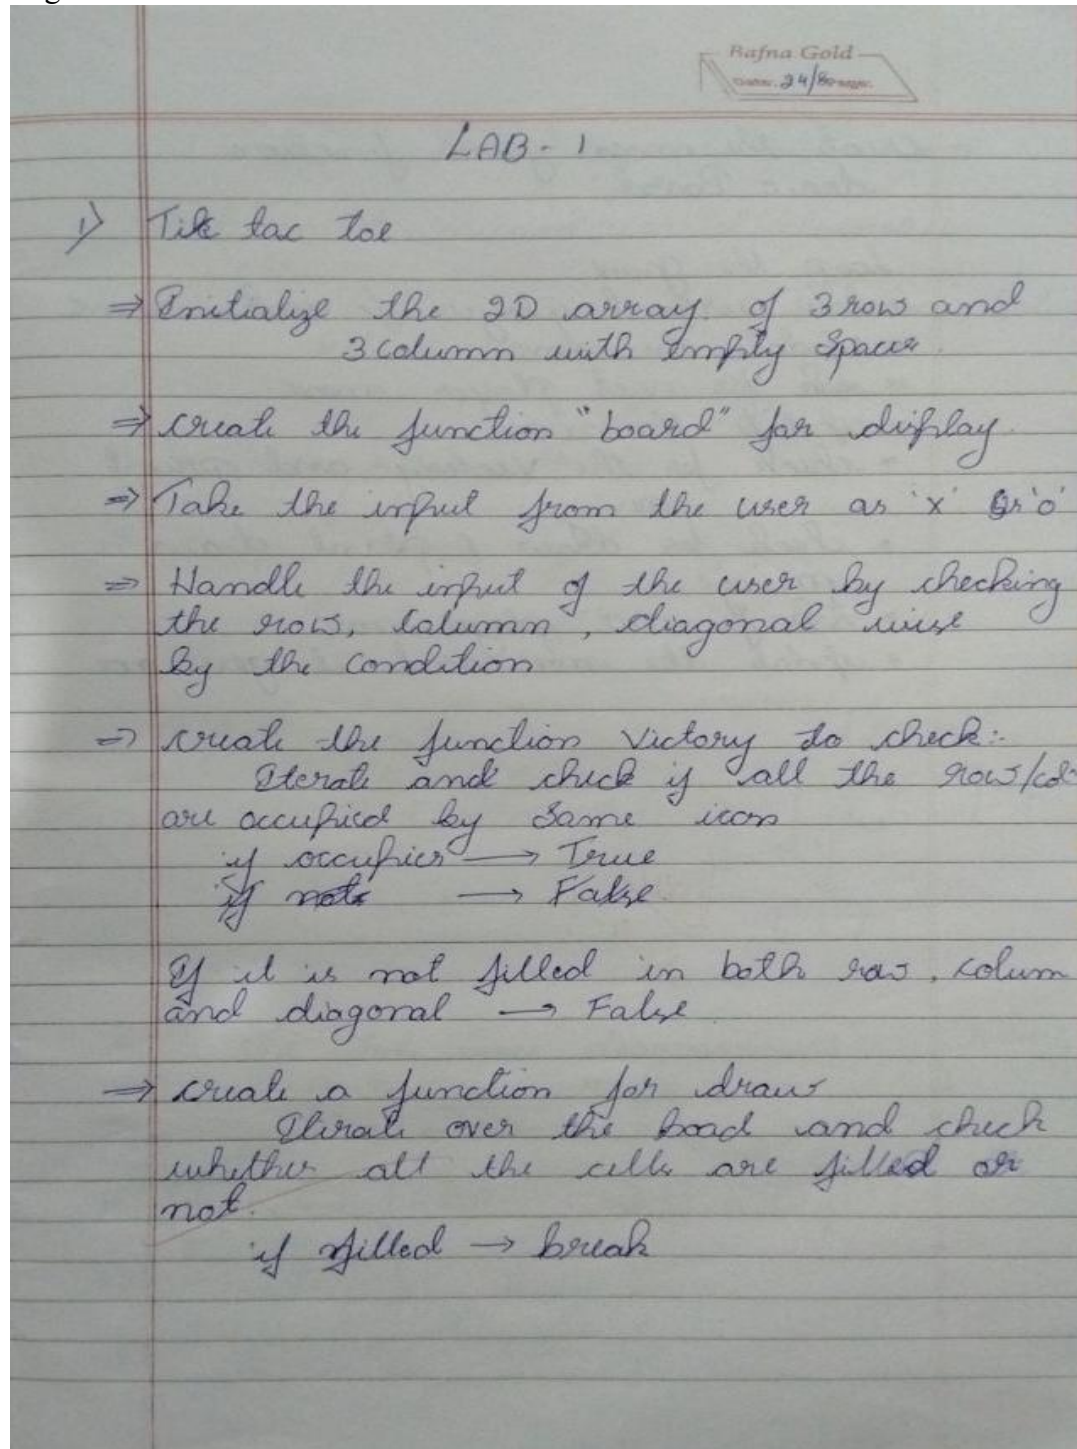 Bafna Gold
24/8
LAB - 1
1) Tik tac toe
⇒ Initialize the 2D array of 3 row and
3 column with Empty Spaces
⇒ create the function "board" for display.
⇒ Take the input from the user as 'x' or 'o'
⇒ Handle the input of the user by checking
the row, Column, diagonal wise
by the condition
⇒ create the function Victory to check:-
Iterate and check if all the row/col
are occupied by Same icon
if occupies → True
if not → False.
If it is not filled in both row, colum
and diagonal → False
⇒ create a function for draw
Iterate over the boad and check
whether all the cells are filled or
not.
if filled → break